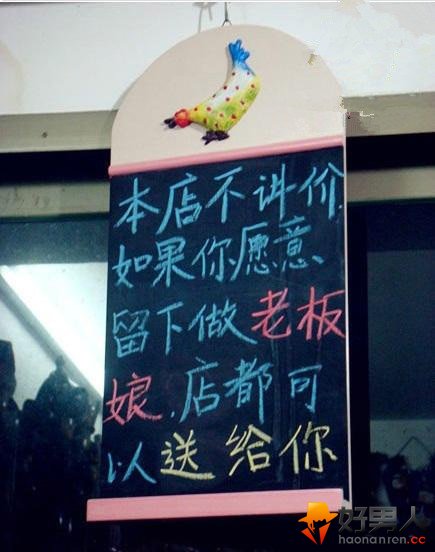 本店不讲价
如果你愿意
留下做老板
娘,店都可
以送给你
好男人
haonanren.cc